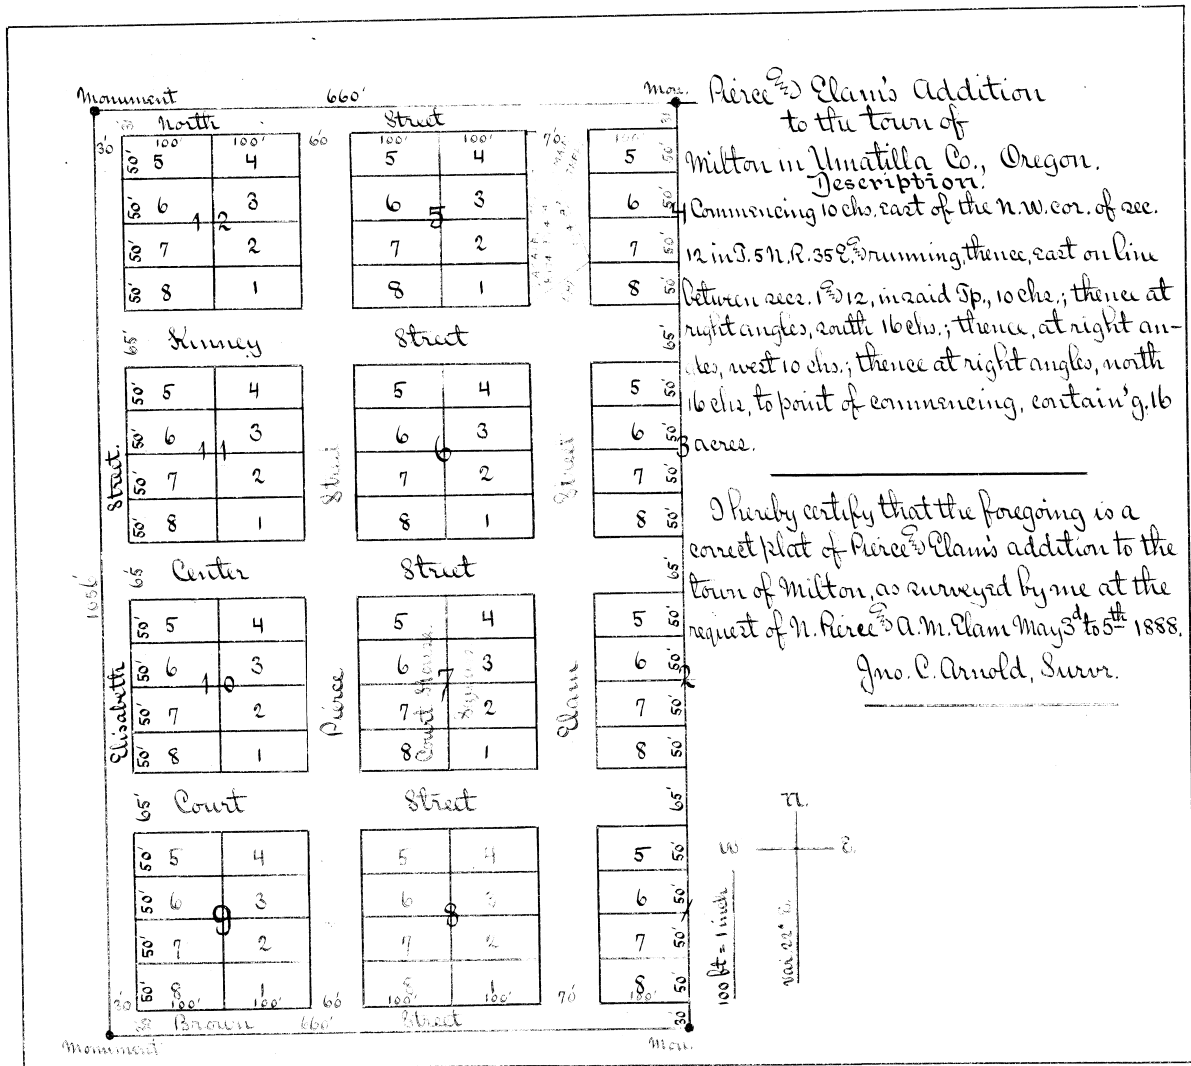 Monument 660' Mon.
North Street
30' 31 100' 100' 60 100' 100' 70' 100' 31
50' 5 4 5 4 5 50'
50' 6 3 6 3 6 50'
12 5 4
50' 7 2 7 2 7 50'
50' 8 1 8 1 8 50'
65' Kinney Street 65'
50' 5 4 5 4 5 50'
50' 6 3 6 3 6 50'
11 6 3
50' 7 2 7 2 7 50'
50' 8 1 8 1 8 50'
Street. Street Street
65' Center Street 65'
1056'
50' 5 4 5 4 5 50'
50' 6 3 6 3 6 50'
10 7 2
50' 7 2 7 2 7 50'
50' 8 1 8 1 8 50'
Elisabeth Pierce Court House Square Elam
65' Court Street 65'
50' 5 4 5 4 5 50'
50' 6 3 6 3 6 50'
9 8 1
50' 7 2 7 2 7 50'
50' 8 1 8 1 8 50'
30' 100' 100' 60' 100' 100' 70' 100' 30
Brown 660' Street
Monument Mon.
Pierce & Elam's Addition
to the town of
Milton in Umatilla Co., Oregon.
Description.
Commencing 10 chs. east of the N.W. cor. of sec.
12 in T. 5 N. R. 35 E. & running, thence, east on line
between secs. 1 & 12, in said Tp., 10 chs.; thence at
right angles, south 16 chs.; thence, at right an-
les, west 10 chs.; thence at right angles, north
16 chs, to point of commencing, contain'g. 16
acres.
I hereby certify that the foregoing is a
correct plat of Pierce & Elam's addition to the
town of Milton, as surveyed by me at the
request of N. Pierce & A. M. Elam May 3d to 5th 1888.
Jno. C. Arnold, Survr.
N.
W E.
100 ft = 1 inch
Var. 22° E.